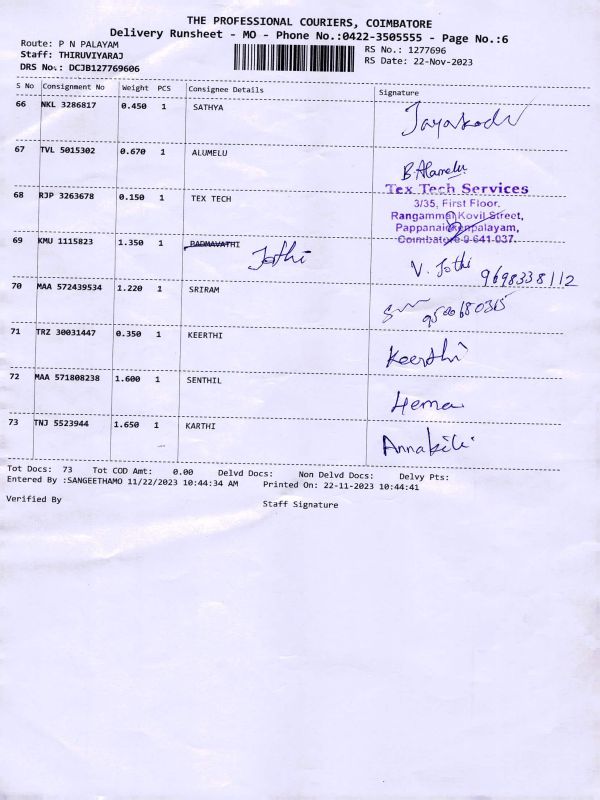 THE PROFESSIONAL COURIERS, COIMBATORE
Delivery Runsheet - MO - Phone No.:0422-3505555 - Page No.:6
Route: P N PALAYAM
Staff: THIRUVIYARAJ
DRS No.: DCJB127769606
RS No.: 1277696
RS Date: 22-Nov-2023
S No Consignment No Weight PCS Consignee Details Signature
66 NKL 3286817 0.450 1 SATHYA Jayakodi
67 TVL 5015302 0.670 1 ALUMELU B.Alamelu
68 RJP 3263678 0.150 1 TEX TECH
Tex Tech Services
3/35, First Floor,
Rangammal Kovil Street,
Pappanaickenpalayam,
Coimbatore-641 037.
69 KMU 1115823 1.350 1 PADMAVATHI Jothi V. Jothi 9698338112
70 MAA 572439534 1.220 1 SRIRAM
71 TRZ 30031447 0.350 1 KEERTHI Keerthi
72 MAA 571808238 1.600 1 SENTHIL Hema
73 TNJ 5523944 1.650 1 KARTHI Annakili
Tot Docs: 73 Tot COD Amt: 0.00 Delvd Docs: Non Delvd Docs: Delvy Pts:
Entered By :SANGEETHAMO 11/22/2023 10:44:34 AM Printed On: 22-11-2023 10:44:41
Verified By Staff Signature